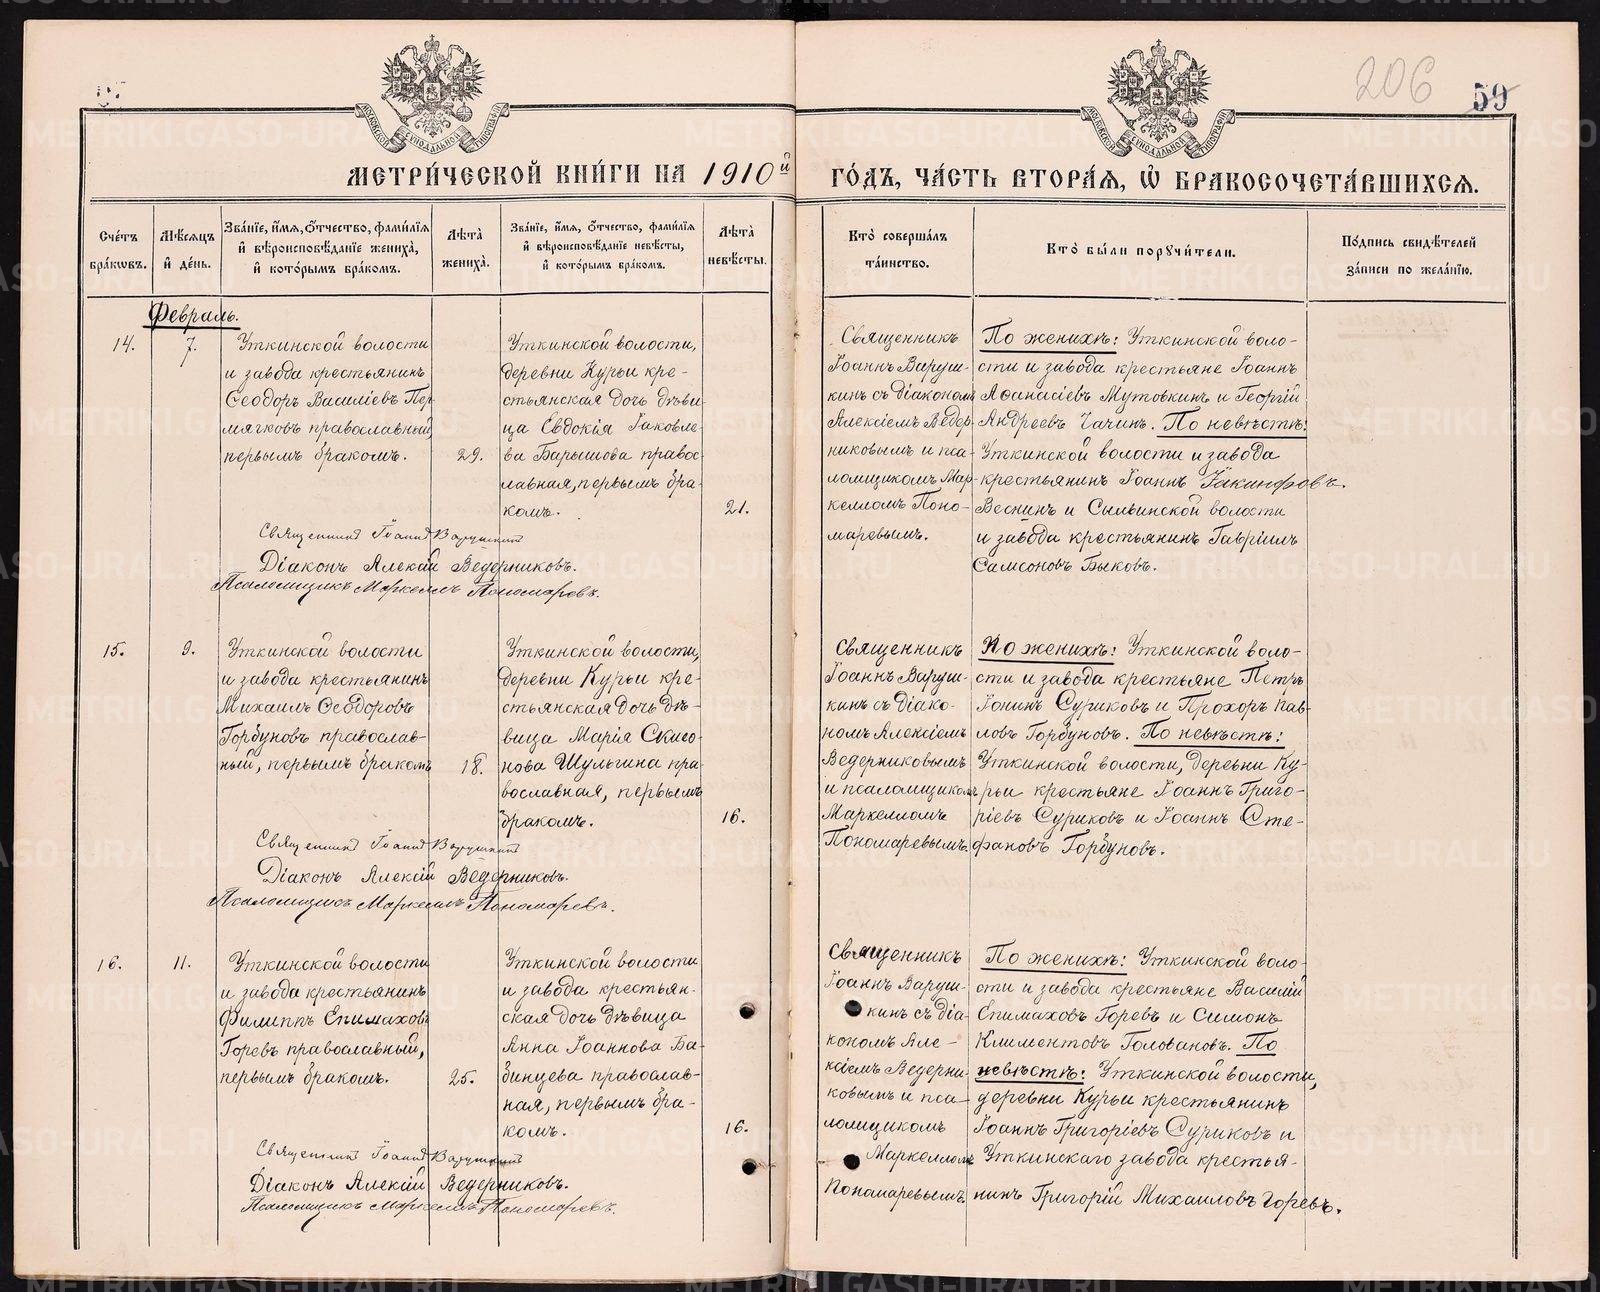 206
59
МЕТРИ́ЧЕСКОЙ КНИ́ГИ НА 1910й ГО́ДЪ, ЧА́СТЬ ВТОРА́Я, Ѡ БРАКОСОЧЕТА́ВШИХСЯ.
Сче́тъ бра́кѡвъ.
Мѣ́сяцъ и де́нь.
Зва́нїе, и́мя, ѻ́тчество, фами́лїя и вѣроисповѣ́данїе жениха̀, и кото́рымъ бра́комъ.
Лѣ́та жениха̀.
Зва́нїе, и́мя, ѻ́тчество, фами́лїя и вѣроисповѣ́данїе невѣ́сты, и кото́рымъ бра́комъ.
Лѣ́та невѣ́сты.
Кто̀ соверша́лъ та́инство.
Кто̀ бы́ли порꙋчи́тели.
По́дпись свидѣ́телей за́писи по жела́нїю.
Февраль.
14.
7.
Уткинской волости
и завода крестьянинъ
Ѳеодоръ Василіевъ Пер
мягковъ православный,
первымъ бракомъ.
29.
Уткинской волости,
деревни Курьи кре-
стьянская дочь дѣви
ца Евдокія Іаковле-
ва Барышова правос
лавная, первымъ бра-
комъ.
21.
Священникъ
Іоаннъ Варуш-
кинъ съ діакономъ
Алексіемъ Ведер-
никовымъ и пса-
ломщикомъ Мар-
келломъ Поно-
маревымъ.
По женихѣ: Уткинской воло-
сти и завода крестьяне Іоаннъ
Аѳанасіевъ Мутовкинъ и Георгій
Андреевъ Чачинъ. По невѣстѣ:
Уткинской волости и завода
крестьянинъ Іоаннъ Іакинфовъ.
Веснинъ и Сылвинской волости
и завода крестьянинъ Гавріилъ
Самсоновъ Быковъ.
Священникъ Іоаннъ Варушкинъ
Діаконъ Алексій Ведерниковъ.
Псаломщикъ Маркеллъ Пономаревъ.
15.
9.
Уткинской волости
и завода крестьянинъ
Михаилъ Ѳеодоровъ
Горбуновъ православ-
ный, первымъ бракомъ
18.
Уткинской волости,
деревни Курьи кре-
стьянская дочь дѣ-
вица Марія
нова Шульгина пра-
вославная, первымъ
бракомъ.
16.
Священникъ
Іоаннъ Варуш-
кинъ съ діако-
номъ Алексіемъ
Ведерниковымъ
и псаломщикомъ
Маркелломъ
Пономаревымъ.
По женихѣ: Уткинской воло-
сти и завода крестьяне Петръ
Іонинъ Суриковъ и Прохоръ Пав-
ловъ Горбуновъ. По невѣстѣ:
Уткинской волости, деревни Ку-
рьи крестьяне Іоаннъ Григо-
ріевъ Суриковъ и Іоаннъ Сте-
фановъ Горбуновъ.
Священникъ Іоаннъ Варушкинъ
Діаконъ Алексій Ведерниковъ.
Псаломщикъ Маркеллъ Пономаревъ.
16.
11.
Уткинской волости
и завода крестьянинъ
Филиппъ Епимаховъ
Горевъ православный,
первымъ бракомъ.
25.
Уткинской волости
и завода крестьян-
ская дочь дѣвица
Анна Іоаннова Ба-
бинцева православ-
ная, первымъ бра-
комъ.
16.
Священникъ
Іоаннъ Варуш-
кинъ съ діа-
кономъ Але-
ксіемъ Ведерни-
ковымъ и пса-
ломщикомъ
Маркелломъ
Пономаревымъ.
По женихѣ: Уткинской воло-
сти и завода крестьяне Василій
Епимаховъ Горевъ и Симонъ
Климентовъ Головановъ. По
невѣстѣ: Уткинской волости,
деревни Курьи крестьянинъ
Іоаннъ Григоріевъ Суриковъ и
Уткинскаго завода крестья-
нинъ Григорій Михаиловъ Горевъ.
Священникъ Іоаннъ Варушкинъ
Діаконъ Алексій Ведерниковъ.
Псаломщикъ Маркеллъ Пономаревъ.